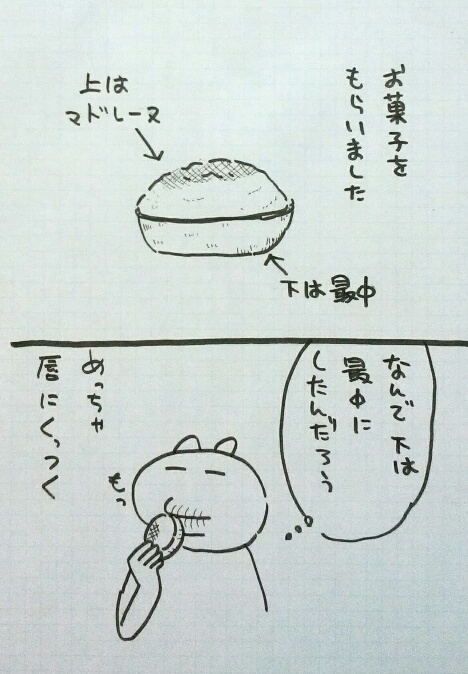 お菓子を
もらいました
上は
マドレーヌ
下は最中
なんで下は
最中に
したんだろう
めっちゃ
唇にくっつく
もっ